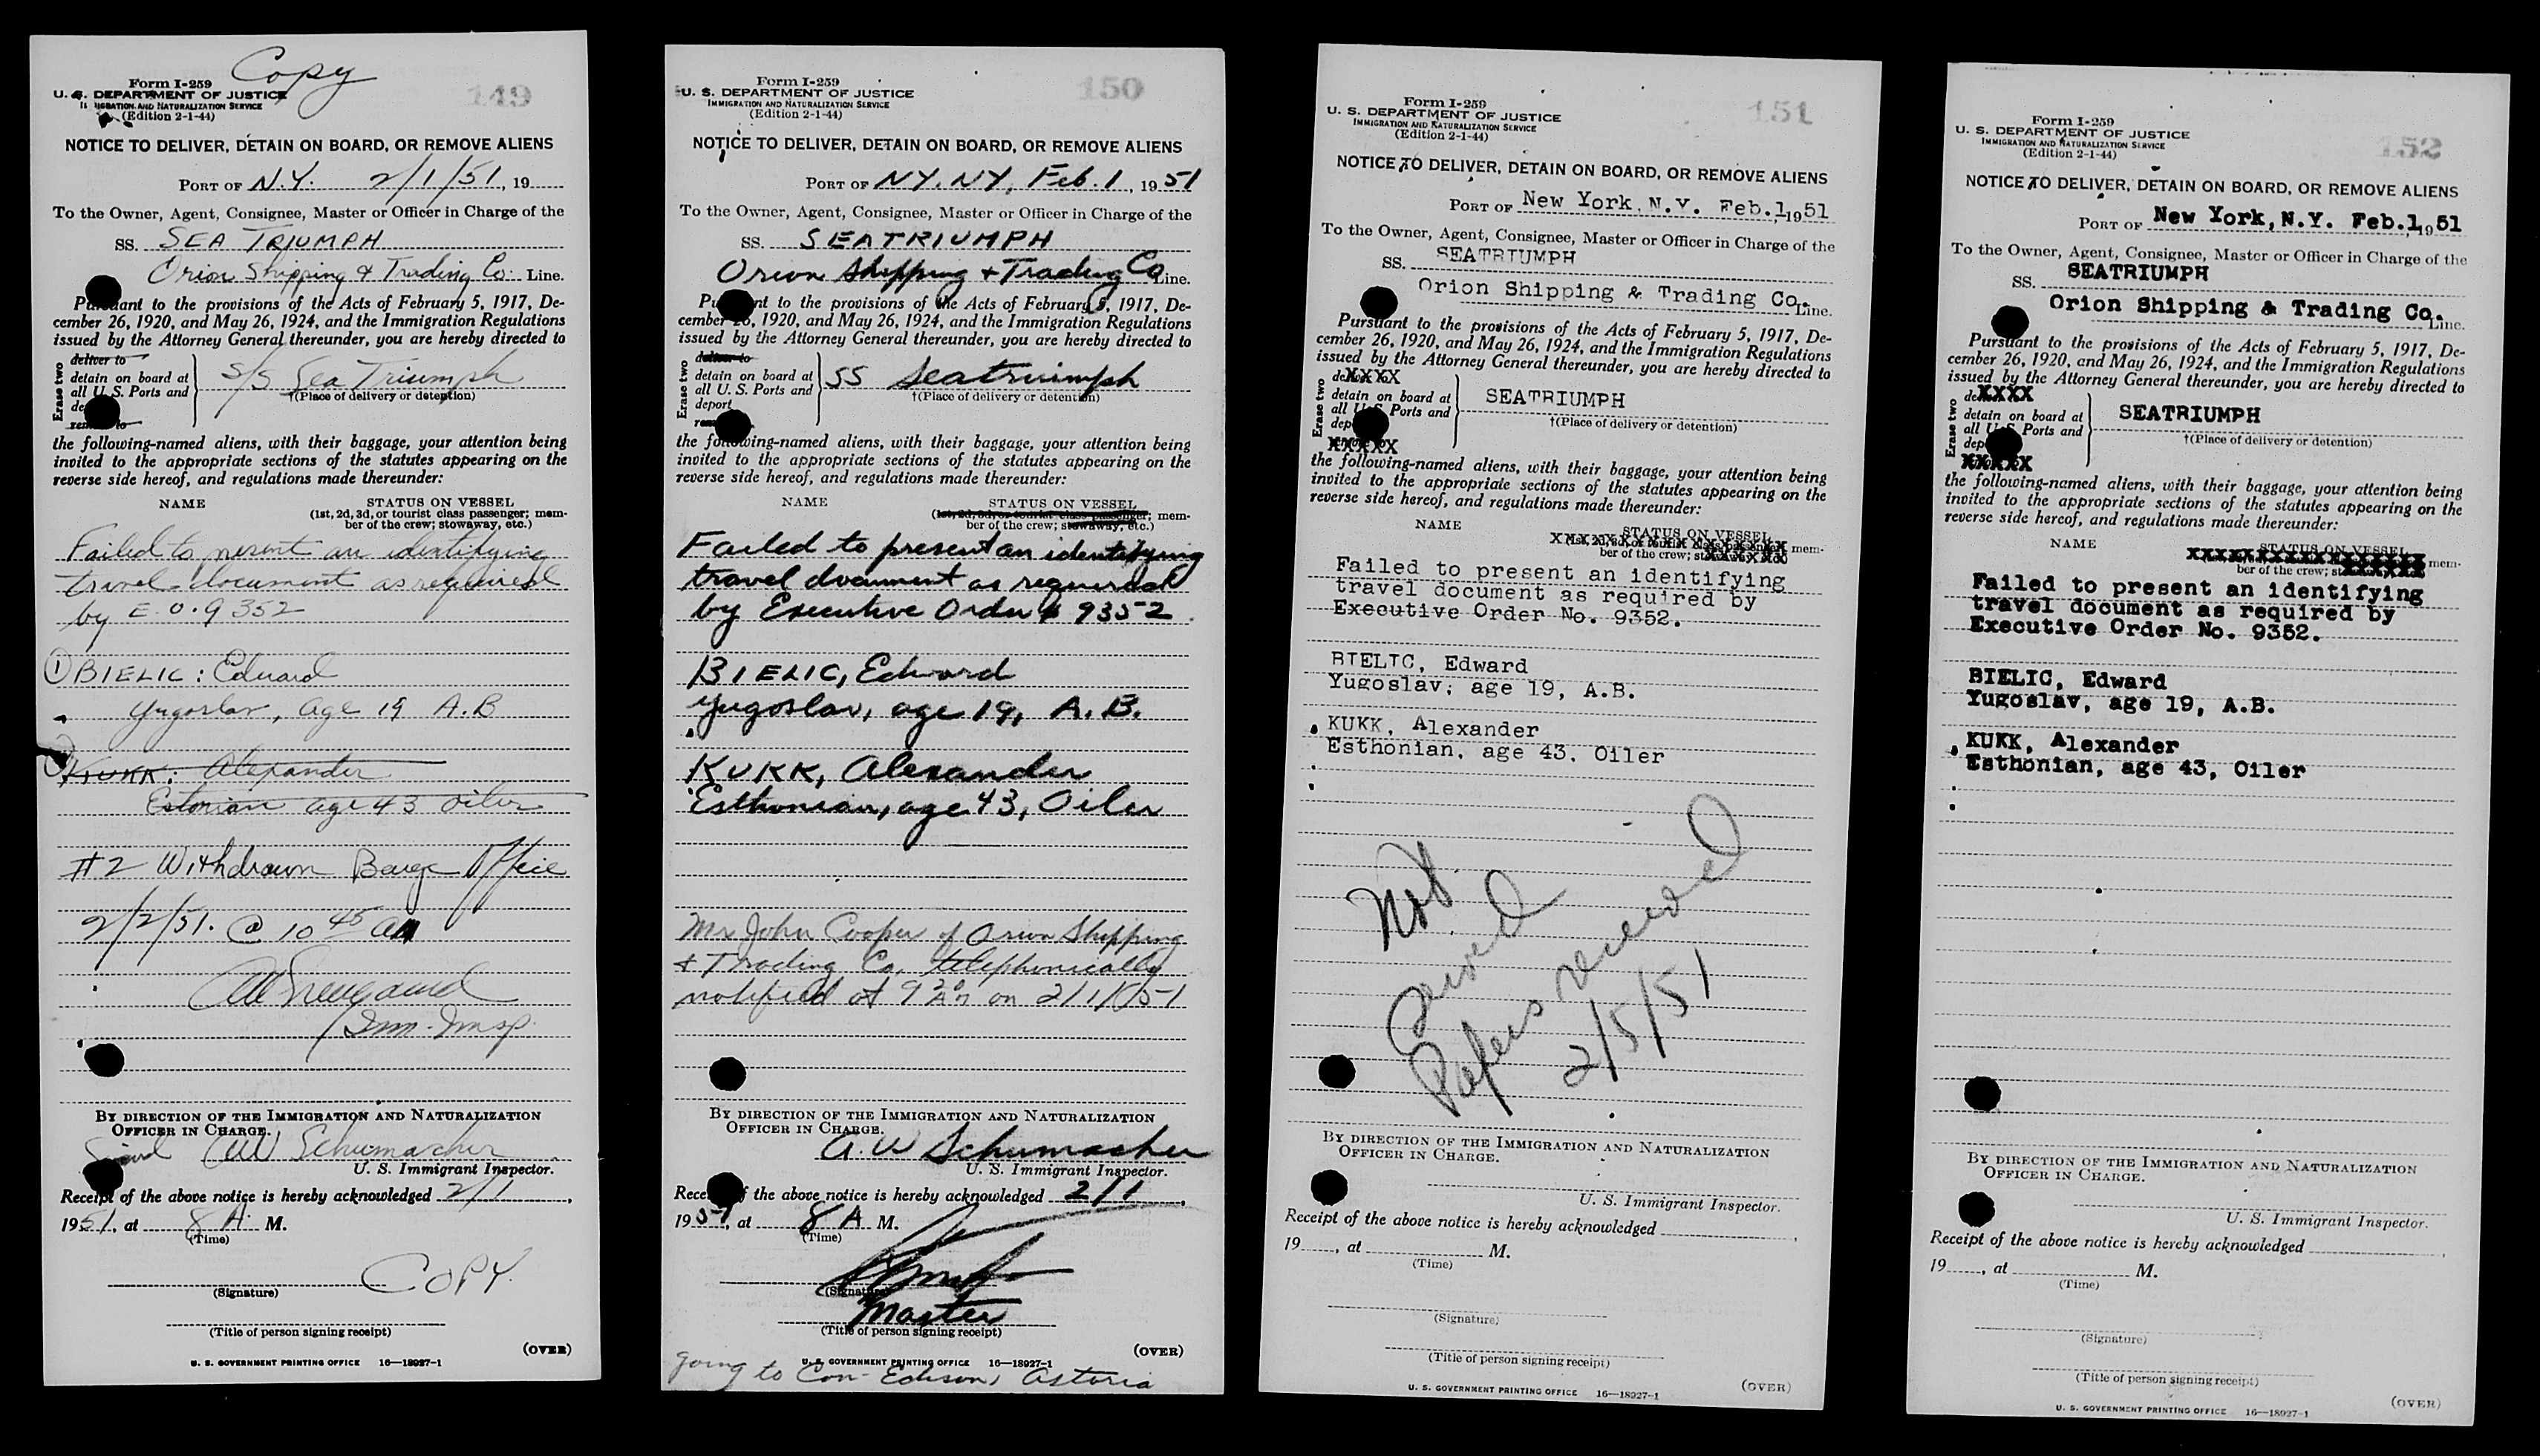 Copy
Form I-259
149
U. S. DEPARTMENT OF JUSTICE
IMMIGRATION AND NATURALIZATION SERVICE
(Edition 2-1-44)
NOTICE TO DELIVER, DETAIN ON BOARD, OR REMOVE ALIENS
PORT OF N.Y. 2/1/51, 19
To the Owner, Agent, Consignee, Master or Officer in Charge of the
SS. SEA TRIUMPH
Orion Shipping & Trading Co. Line.
Pursuant to the provisions of the Acts of February 5, 1917, De-
cember 26, 1920, and May 26, 1924, and the Immigration Regulations
issued by the Attorney General thereunder, you are hereby directed to
Erase two
deliver to
detain on board at
all U. S. Ports and
S/S Sea Triumph
†(Place of delivery or detention)
the following-named aliens, with their baggage, your attention being
invited to the appropriate sections of the statutes appearing on the
reverse side hereof, and regulations made thereunder:
NAME STATUS ON VESSEL
(1st, 2d, 3d, or tourist class passenger; mem-
ber of the crew; stowaway, etc.)
Failed to present an identifying
travel document as required
by E.O. 9352
① BIELIC: Eduard
Yugoslav, age 19 A.B
KUKK: Alexander
Estonian age 43 oiler
#2 Withdrawn Barge Office
2/2/51. @ 10 45 AM
Imm. Insp.
BY DIRECTION OF THE IMMIGRATION AND NATURALIZATION
OFFICER IN CHARGE.
Signed AW Schumacher
U. S. Immigrant Inspector.
Receipt of the above notice is hereby acknowledged 2/1,
1951, at 8 A. M.
(Time)
COPY
(Signature)
(Title of person signing receipt)
(OVER)
U. S. GOVERNMENT PRINTING OFFICE 16—18927-1
Form I-259
150
U. S. DEPARTMENT OF JUSTICE
IMMIGRATION AND NATURALIZATION SERVICE
(Edition 2-1-44)
NOTICE TO DELIVER, DETAIN ON BOARD, OR REMOVE ALIENS
PORT OF NY. NY, Feb. 1, 1951
To the Owner, Agent, Consignee, Master or Officer in Charge of the
SS. SEATRIUMPH
Orion Shipping & Trading Co Line.
Pursuant to the provisions of the Acts of February 5, 1917, De-
cember 26, 1920, and May 26, 1924, and the Immigration Regulations
issued by the Attorney General thereunder, you are hereby directed to
Erase two
deliver to
detain on board at
all U. S. Ports and
deport
SS Seatriumph
†(Place of delivery or detention)
the following-named aliens, with their baggage, your attention being
invited to the appropriate sections of the statutes appearing on the
reverse side hereof, and regulations made thereunder:
NAME STATUS ON VESSEL
(1st, 2d, 3d, or tourist class passenger; mem-
ber of the crew; stowaway, etc.)
Failed to present an identifying
travel document as required
by Executive Order # 9352.
BIELIC, Edward
Yugoslav, age 19, A.B.
KUKK, Alexander
Esthonian, age 43, Oiler
Mr John Cooper of Orion Shipping
& Trading Co. telephonically
notified at 9 20 AM on 2/1/51
BY DIRECTION OF THE IMMIGRATION AND NATURALIZATION
OFFICER IN CHARGE.
A. W Schumacher
U. S. Immigrant Inspector.
Receipt of the above notice is hereby acknowledged 2/1,
1951, at 8 A M.
(Time)
(Signature)
Master
(Title of person signing receipt)
(OVER)
U. S. GOVERNMENT PRINTING OFFICE 16—18927-1
going to Con-Edison, Astoria
Form I-259
151
U. S. DEPARTMENT OF JUSTICE
IMMIGRATION AND NATURALIZATION SERVICE
(Edition 2-1-44)
NOTICE TO DELIVER, DETAIN ON BOARD, OR REMOVE ALIENS
PORT OF New York, N.Y. Feb.1, 1951
To the Owner, Agent, Consignee, Master or Officer in Charge of the
SS. SEATRIUMPH
Orion Shipping & Trading Co. Line.
Pursuant to the provisions of the Acts of February 5, 1917, De-
cember 26, 1920, and May 26, 1924, and the Immigration Regulations
issued by the Attorney General thereunder, you are hereby directed to
Erase two
XXXX
detain on board at
all U. S. Ports and
XXXXX
SEATRIUMPH
†(Place of delivery or detention)
the following-named aliens, with their baggage, your attention being
invited to the appropriate sections of the statutes appearing on the
reverse side hereof, and regulations made thereunder:
NAME STATUS ON VESSEL
mem-
ber of the crew;
Failed to present an identifying
travel document as required by
Executive Order No. 9352.
BIELIC, Edward
Yugoslav, age 19, A.B.
KUKK, Alexander
Esthonian, age 43, Oiler
Not
served
Papers received
2/5/51
BY DIRECTION OF THE IMMIGRATION AND NATURALIZATION
OFFICER IN CHARGE.
U. S. Immigrant Inspector.
Receipt of the above notice is hereby acknowledged
19, at M.
(Time)
(Signature)
(Title of person signing receipt)
(OVER)
U. S. GOVERNMENT PRINTING OFFICE 16—18927-1
Form I-259
152
U. S. DEPARTMENT OF JUSTICE
IMMIGRATION AND NATURALIZATION SERVICE
(Edition 2-1-44)
NOTICE TO DELIVER, DETAIN ON BOARD, OR REMOVE ALIENS
PORT OF New York, N.Y. Feb.1, 1951
To the Owner, Agent, Consignee, Master or Officer in Charge of the
SS. SEATRIUMPH
Orion Shipping & Trading Co. Line.
Pursuant to the provisions of the Acts of February 5, 1917, De-
cember 26, 1920, and May 26, 1924, and the Immigration Regulations
issued by the Attorney General thereunder, you are hereby directed to
Erase two
XXXX
detain on board at
all U. S. Ports and
XXXXX
SEATRIUMPH
†(Place of delivery or detention)
the following-named aliens, with their baggage, your attention being
invited to the appropriate sections of the statutes appearing on the
reverse side hereof, and regulations made thereunder:
NAME STATUS ON VESSEL
mem-
ber of the crew;
Failed to present an identifying
travel document as required by
Executive Order No. 9352.
BIELIC, Edward
Yugoslav, age 19, A.B.
KUKK, Alexander
Esthonian, age 43, Oiler
BY DIRECTION OF THE IMMIGRATION AND NATURALIZATION
OFFICER IN CHARGE.
U. S. Immigrant Inspector.
Receipt of the above notice is hereby acknowledged
19, at M.
(Time)
(Signature)
(Title of person signing receipt)
(OVER)
U. S. GOVERNMENT PRINTING OFFICE 16—18927-1